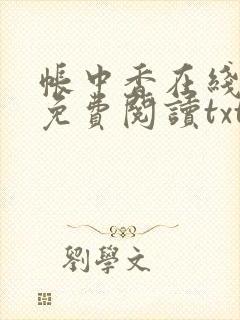 帳中香在綫
免費閱讀txt
劉學文